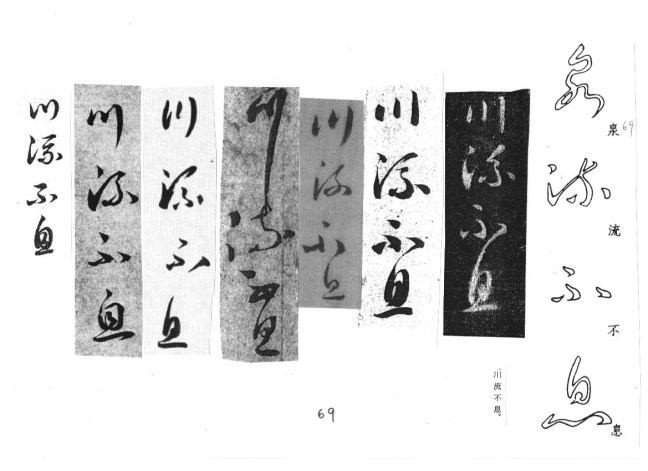 泉流不息
泉 69
流
不
息
川流不息
川流不息
川流不息
川流不息
川流不息
川流不息
川流不息
川流不息。
69